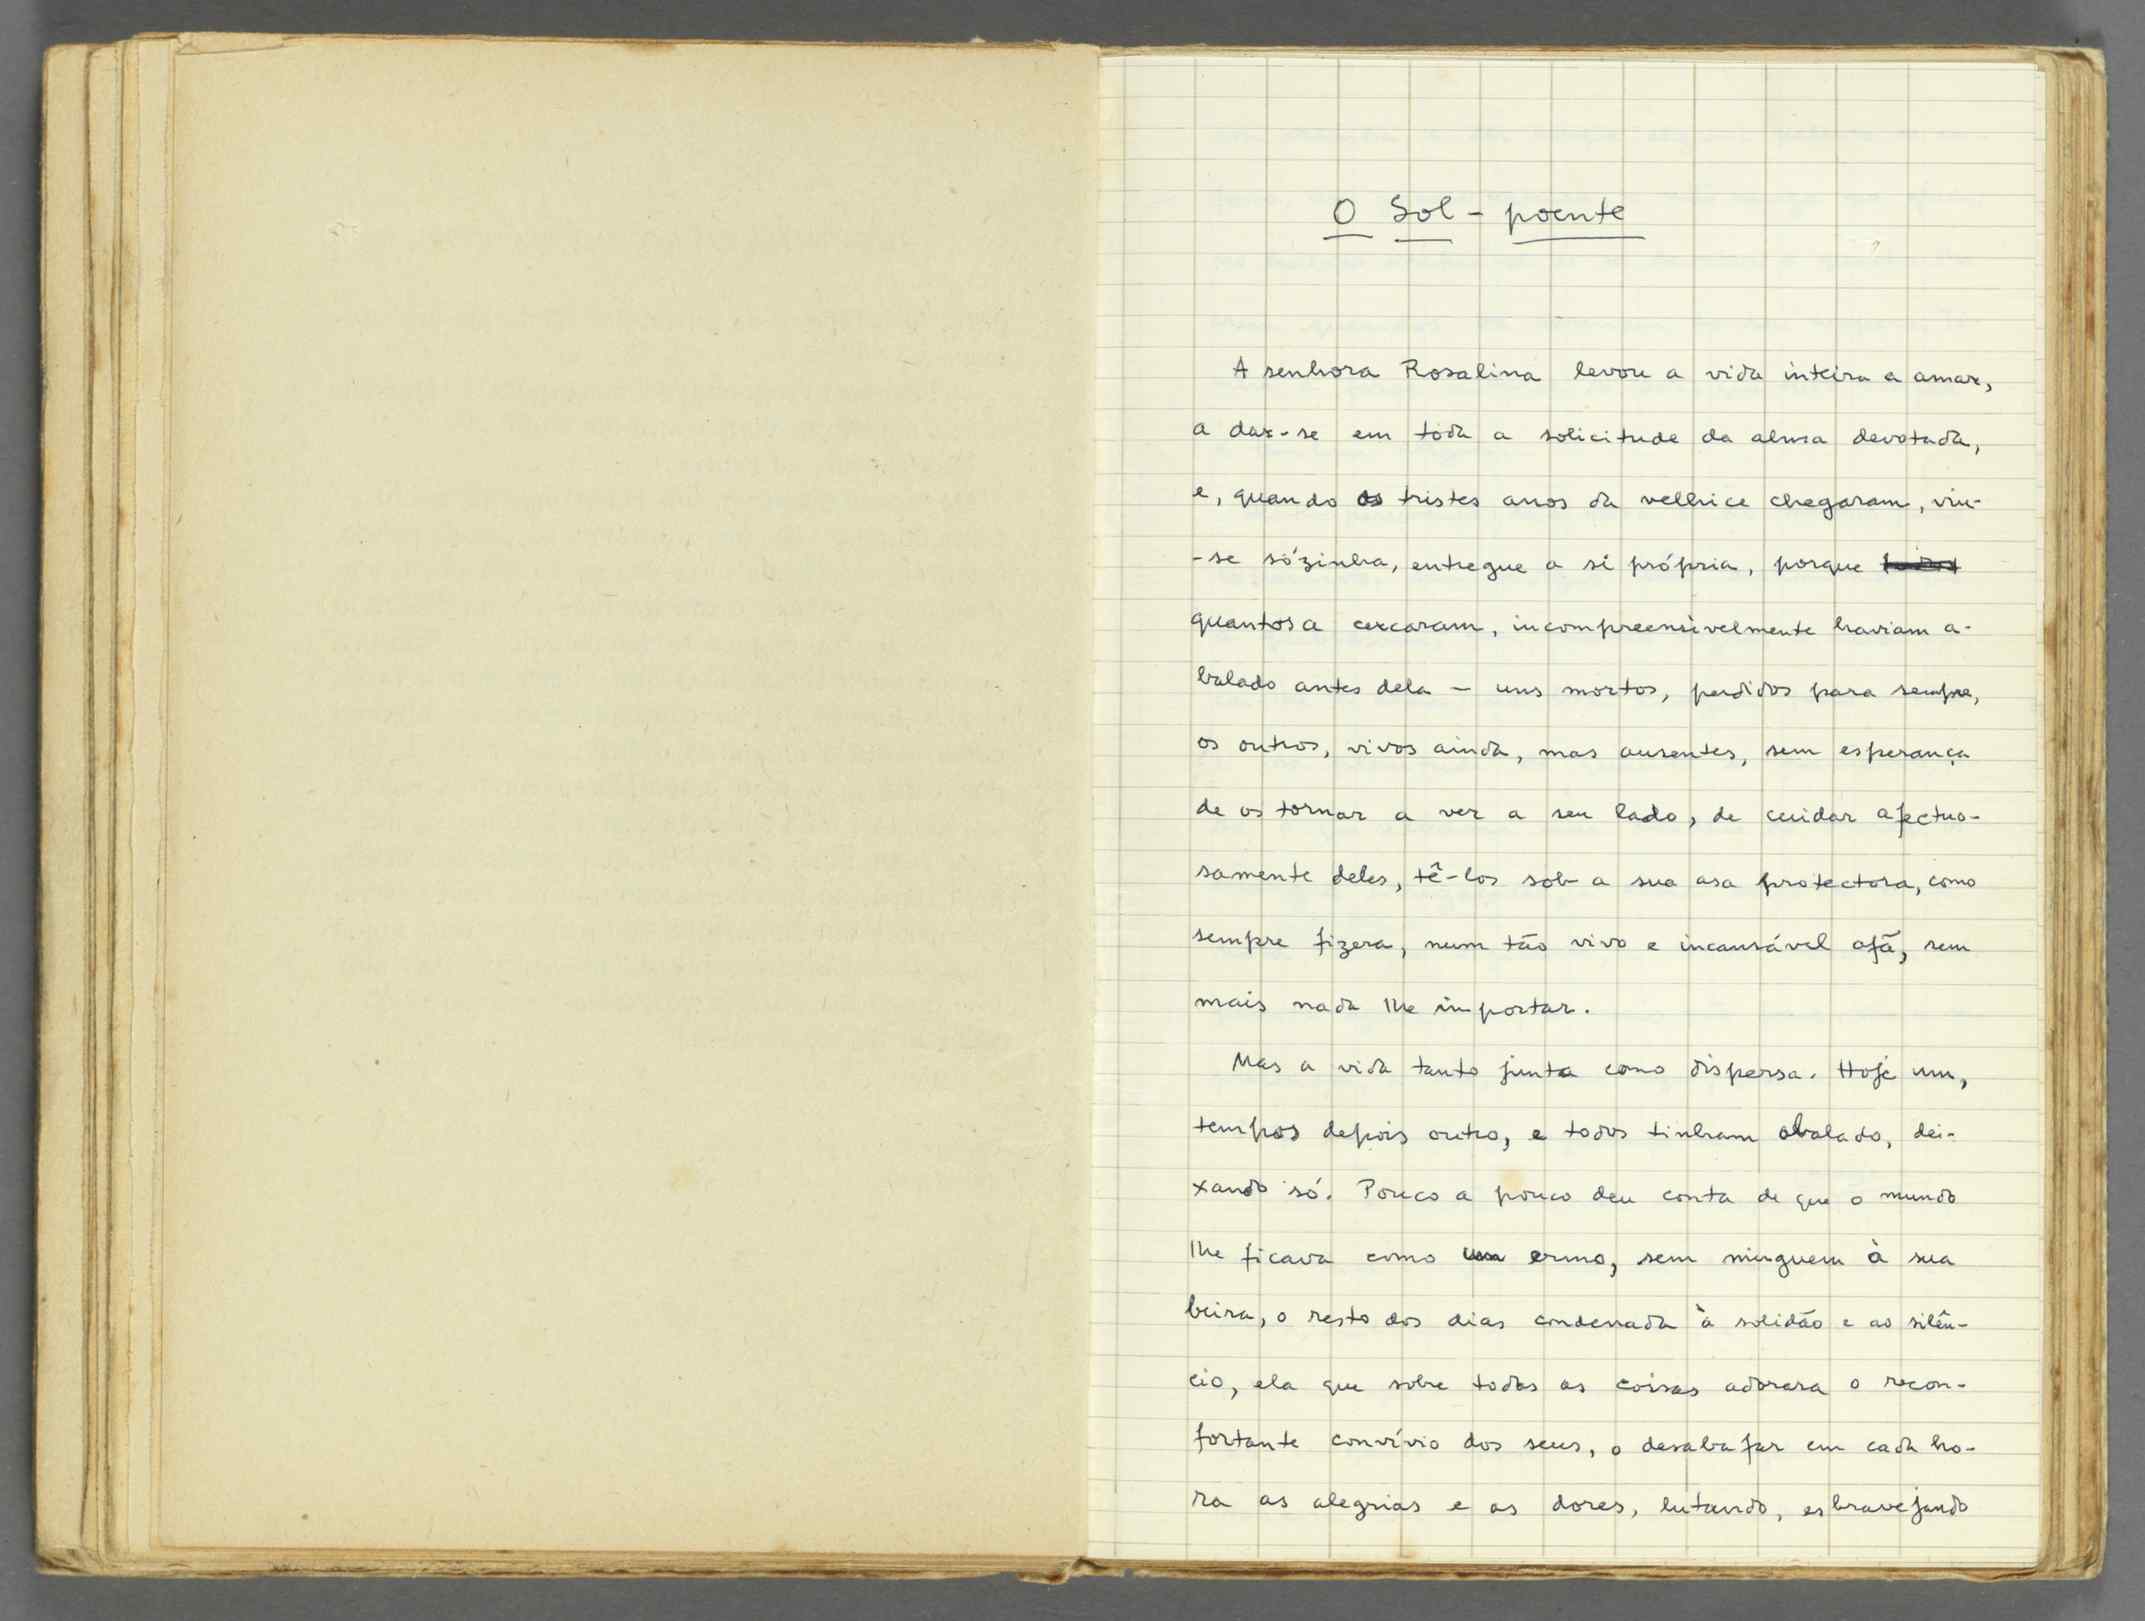 O Sol - poente
A senhora Rosalina levou a vida inteira a amar,
a dar-se em tôda a solicitude da alma devotada,
e, quando os tristes anos da velhice chegaram, viu-
-se sòzinha, entregue a si própria, porque
quantos a cercaram, incompreensivelmente haviam a-
balado antes dela - uns mortos, perdidos para sempre,
os outros, vivos ainda, mas ausentes, sem esperança
de os tornar a ver a seu lado, de cuidar afectuo-
samente deles, tê-los sob a sua asa protectora, como
sempre fizera, num tão vivo e incansável afã, sem
mais nada lhe importar.
Mas a vida tanto junta como dispersa. Hoje um,
tempos depois outro, e todos tinham abalado, dei-
xando só. Pouco a pouco deu conta de que o mundo
lhe ficava como um ermo, sem ninguem à sua
beira, o resto dos dias condenada à solidão e ao silên-
cio, ela que sobre todas as coisas adorara o recon-
fortante convívio dos seus, o desabafar em cada ho-
ra as alegrias e as dores, lutando, esbravejando